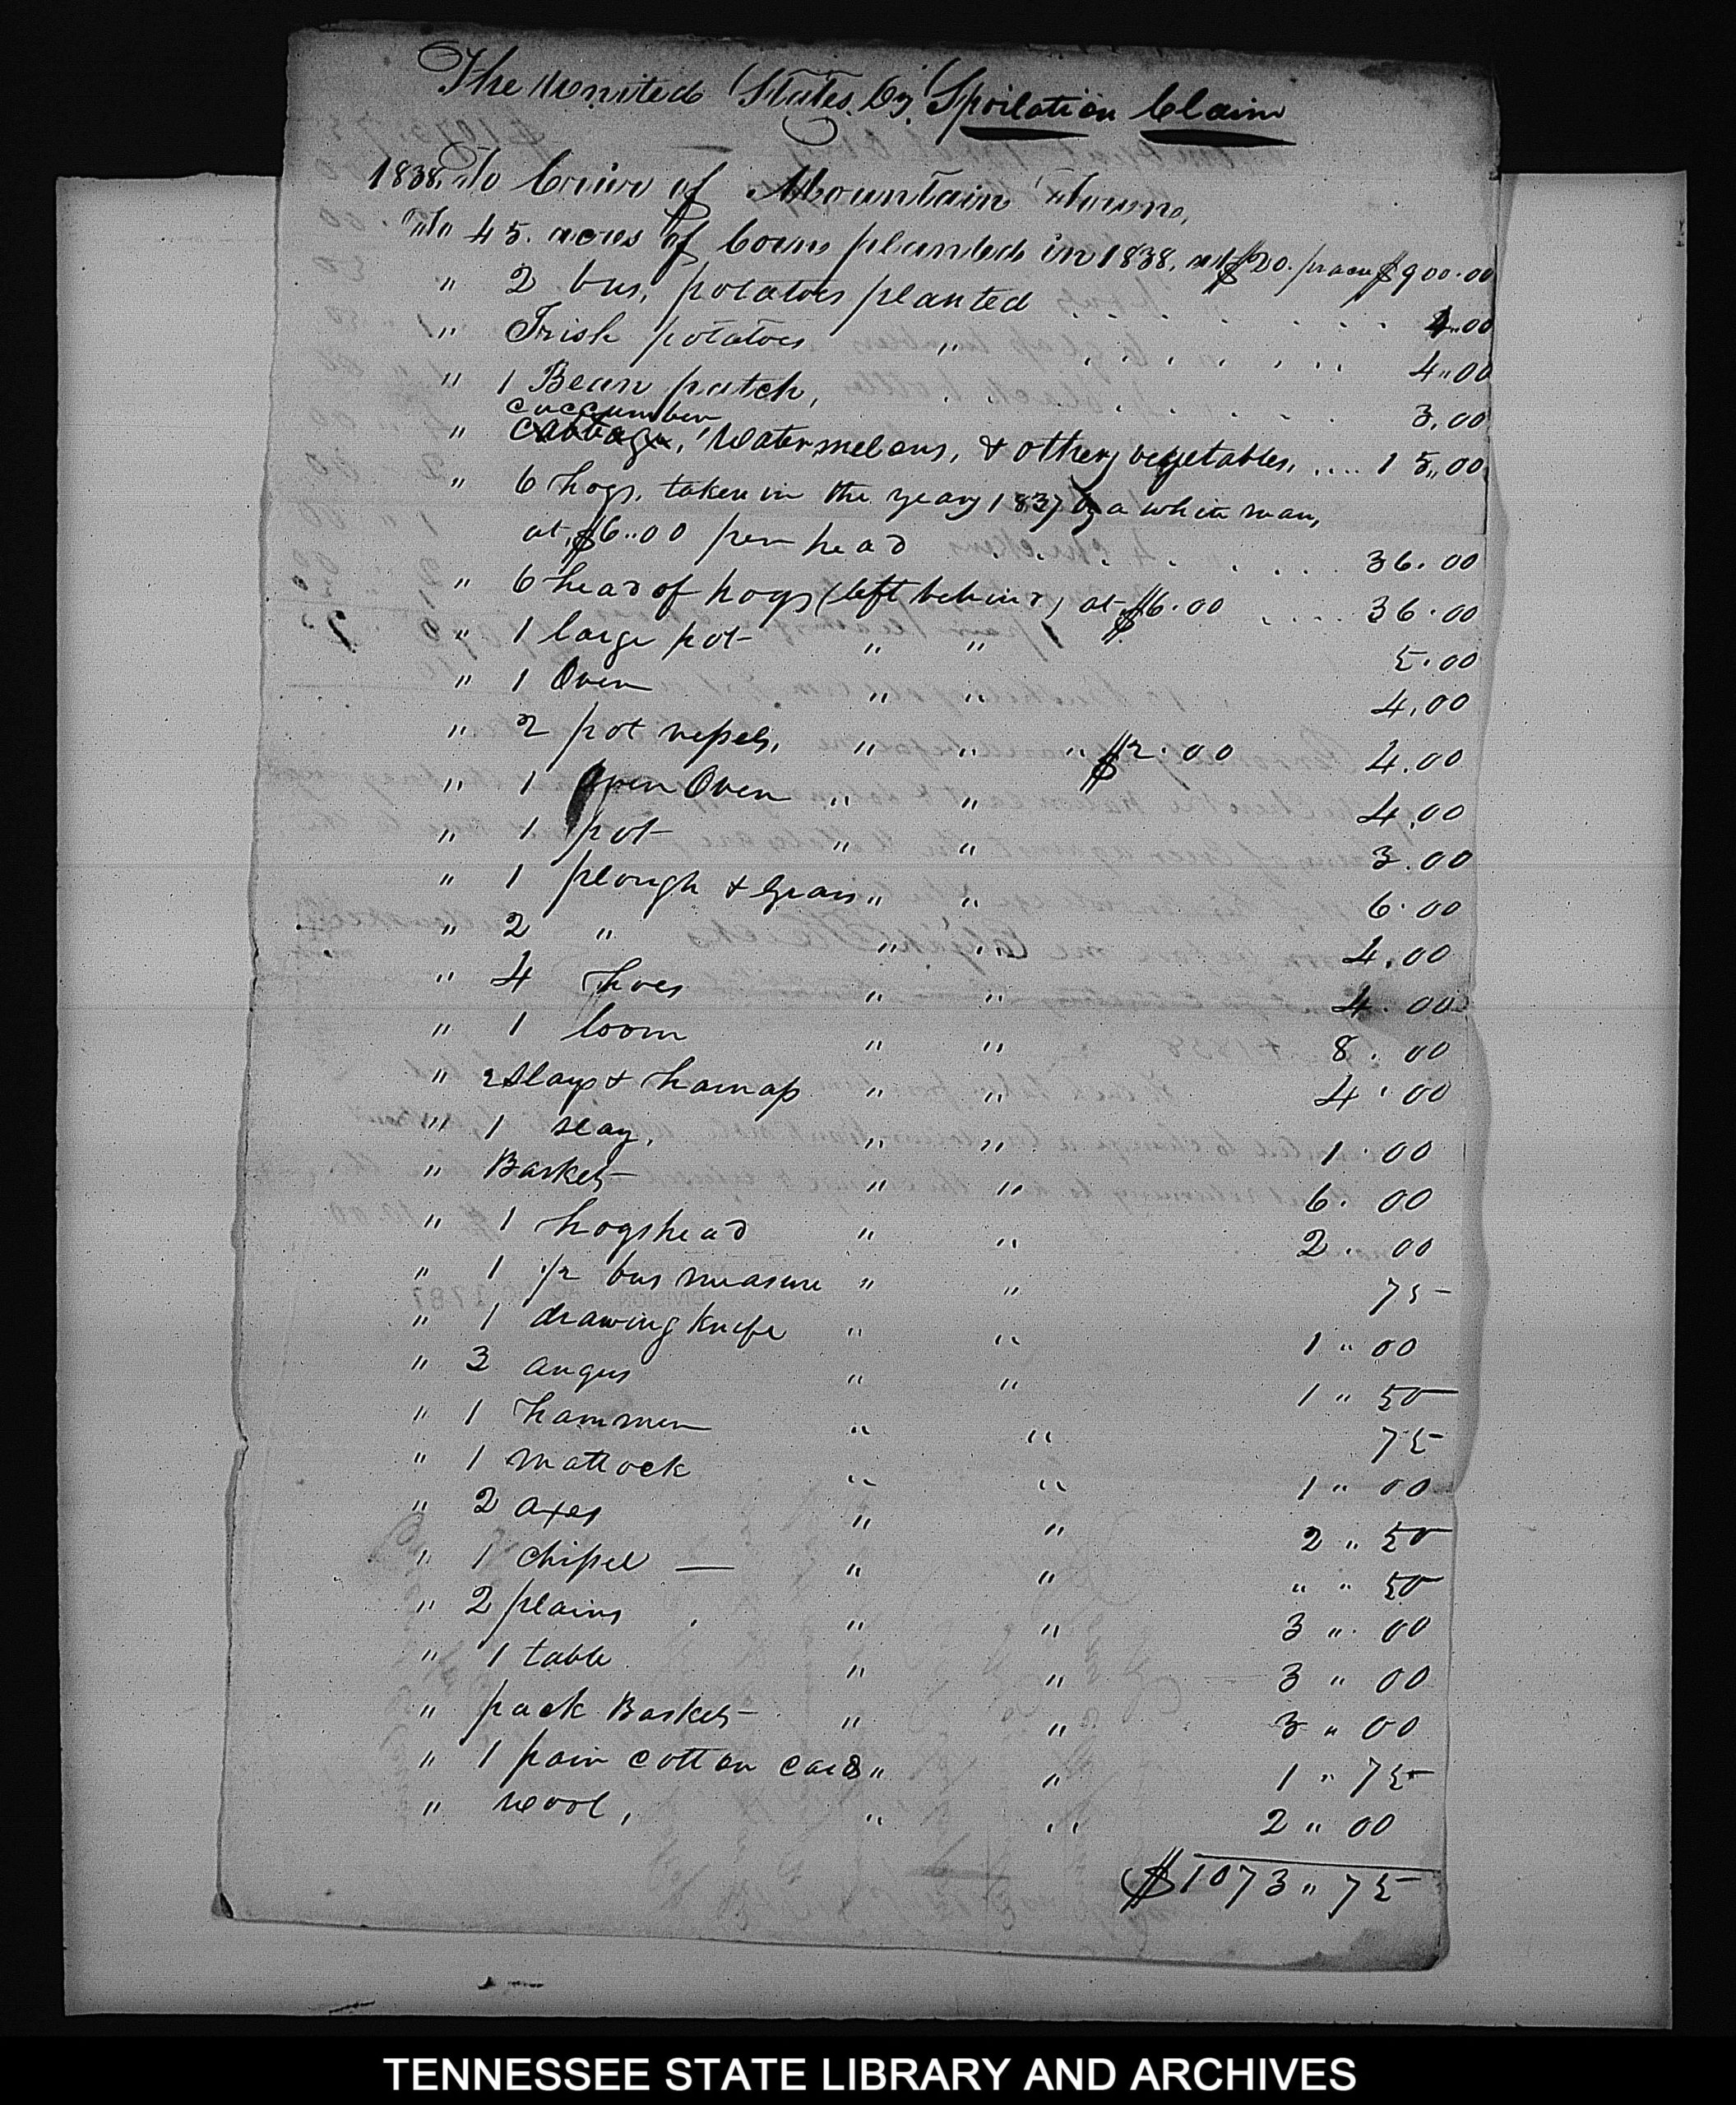 The United States Dr. Spoilation Claim
1838. To Crier of Mountain Town,
To 45. acres of Corn planted in 1838, at $20. pr acre $900.00
" 2 bus, potatoes planted . . . . . . 4.00
" Irish potatoes " . . . . . . 4"00
" 1 Bean patch, . . . . . . . 3,00
cuccumber
" cabbage, Watermelons, & other vegetables, .... 15,,00
" 6 hogs, taken in the year 1837 by a white man,
at, $6"00 per head . . . . . . . . 36.00
" 6 head of hogs (left behind) at $6.00 . . . . . 36.00
" 1 large pot " " 5.00
" 1 Oven " " 4,00
" 2 pot vessels, " " " $2.00 4.00
" 1 Oven " " 4.00
" 1 pot " " 3.00
" 1 plough & Gears " " 6.00
" 2 " " " 4.00
" 4 hoes " " 4.00
" 1 loom " " 8.00
" 2 Slays & harnass " " 4.00
" 1 slay, " " 1.00
" Baskets " " 6.00
" 1 hogshead " " 2.00
" 1 1/2 bus measure " " 75
" 1 drawing Knife " " 1"00
" 3 augus " " 1"50
" 1 hammer " " 75
" 1 mattock " " 1"00
" 2 axes " " 2"50
" 1 chissel — " " " " 50
" 2 plains " " 3"00
" 1 table " " 3"00
" pack Baskets " " 3"00
" 1 pair cotton cards " " 1"75
" wool, " " 2"00
$1073"75
TENNESSEE STATE LIBRARY AND ARCHIVES